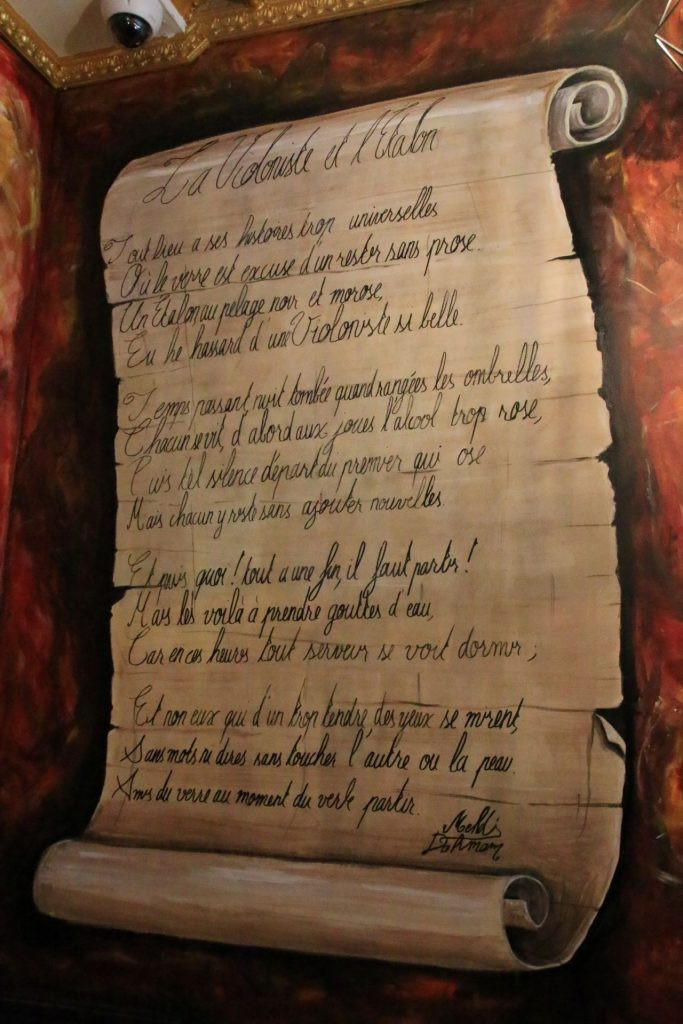 La Violoniste et l'Etalon
Tout lieu a ses histoires trop universelles
Où le verre est excuse d'un rester sans prose.
Un Etalon au pelage noir et morose,
Eu he hassard d'une Violoniste si belle.
Temps passant nuit tombée quand rangées les ombrelles,
Chacun sevit, d'abord aux joues l'alcool trop rose,
Puis tel silence départ du premier qui ose
Mais chacun y reste sans ajouter nouvelles.
Et puis quoi ! tout a une fin, il faut partir !
Mais les voilà à prendre gouttes d'eau,
Car en ces heures tout serveur se voit dormir ;
Et non eux qui d'un trop tendre, des yeux se mirent,
Sans mots ni dires sans touches l'autre ou la peau.
Amis du verre au moment du verbe partir.
Mehdi